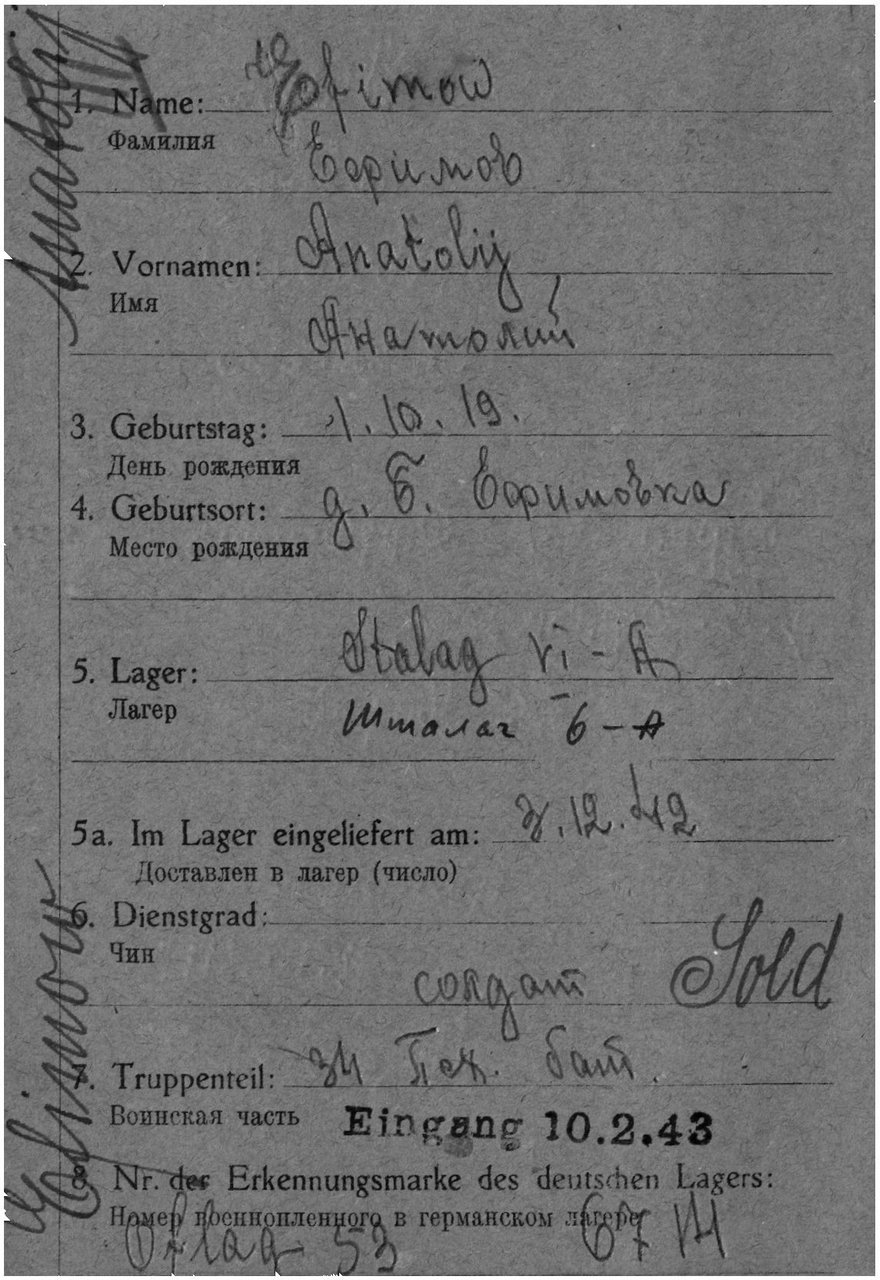 1. Name: Efimow
Фамилия
Ефимов
2. Vornamen: Anatolij
Имя
Анатолий
3. Geburtstag: 1.10.19.
День рождения
4. Geburtsort: д. Б. Ефимовка
Место рождения
5. Lager: Stalag VI-A
Лагер
Шталаг 6-А
5a. Im Lager eingeliefert am: 3.12.42
Доставлен в лагер (число)
6. Dienstgrad:
Чин
солдат Sold
7. Truppenteil: 34 Пех. бат.
Воинская часть
Eingang 10.2.43
8. Nr. der Erkennungsmarke des deutschen Lagers:
Номер военнопленного в германском лагере
Oflag 53
Efimow
Anatolij